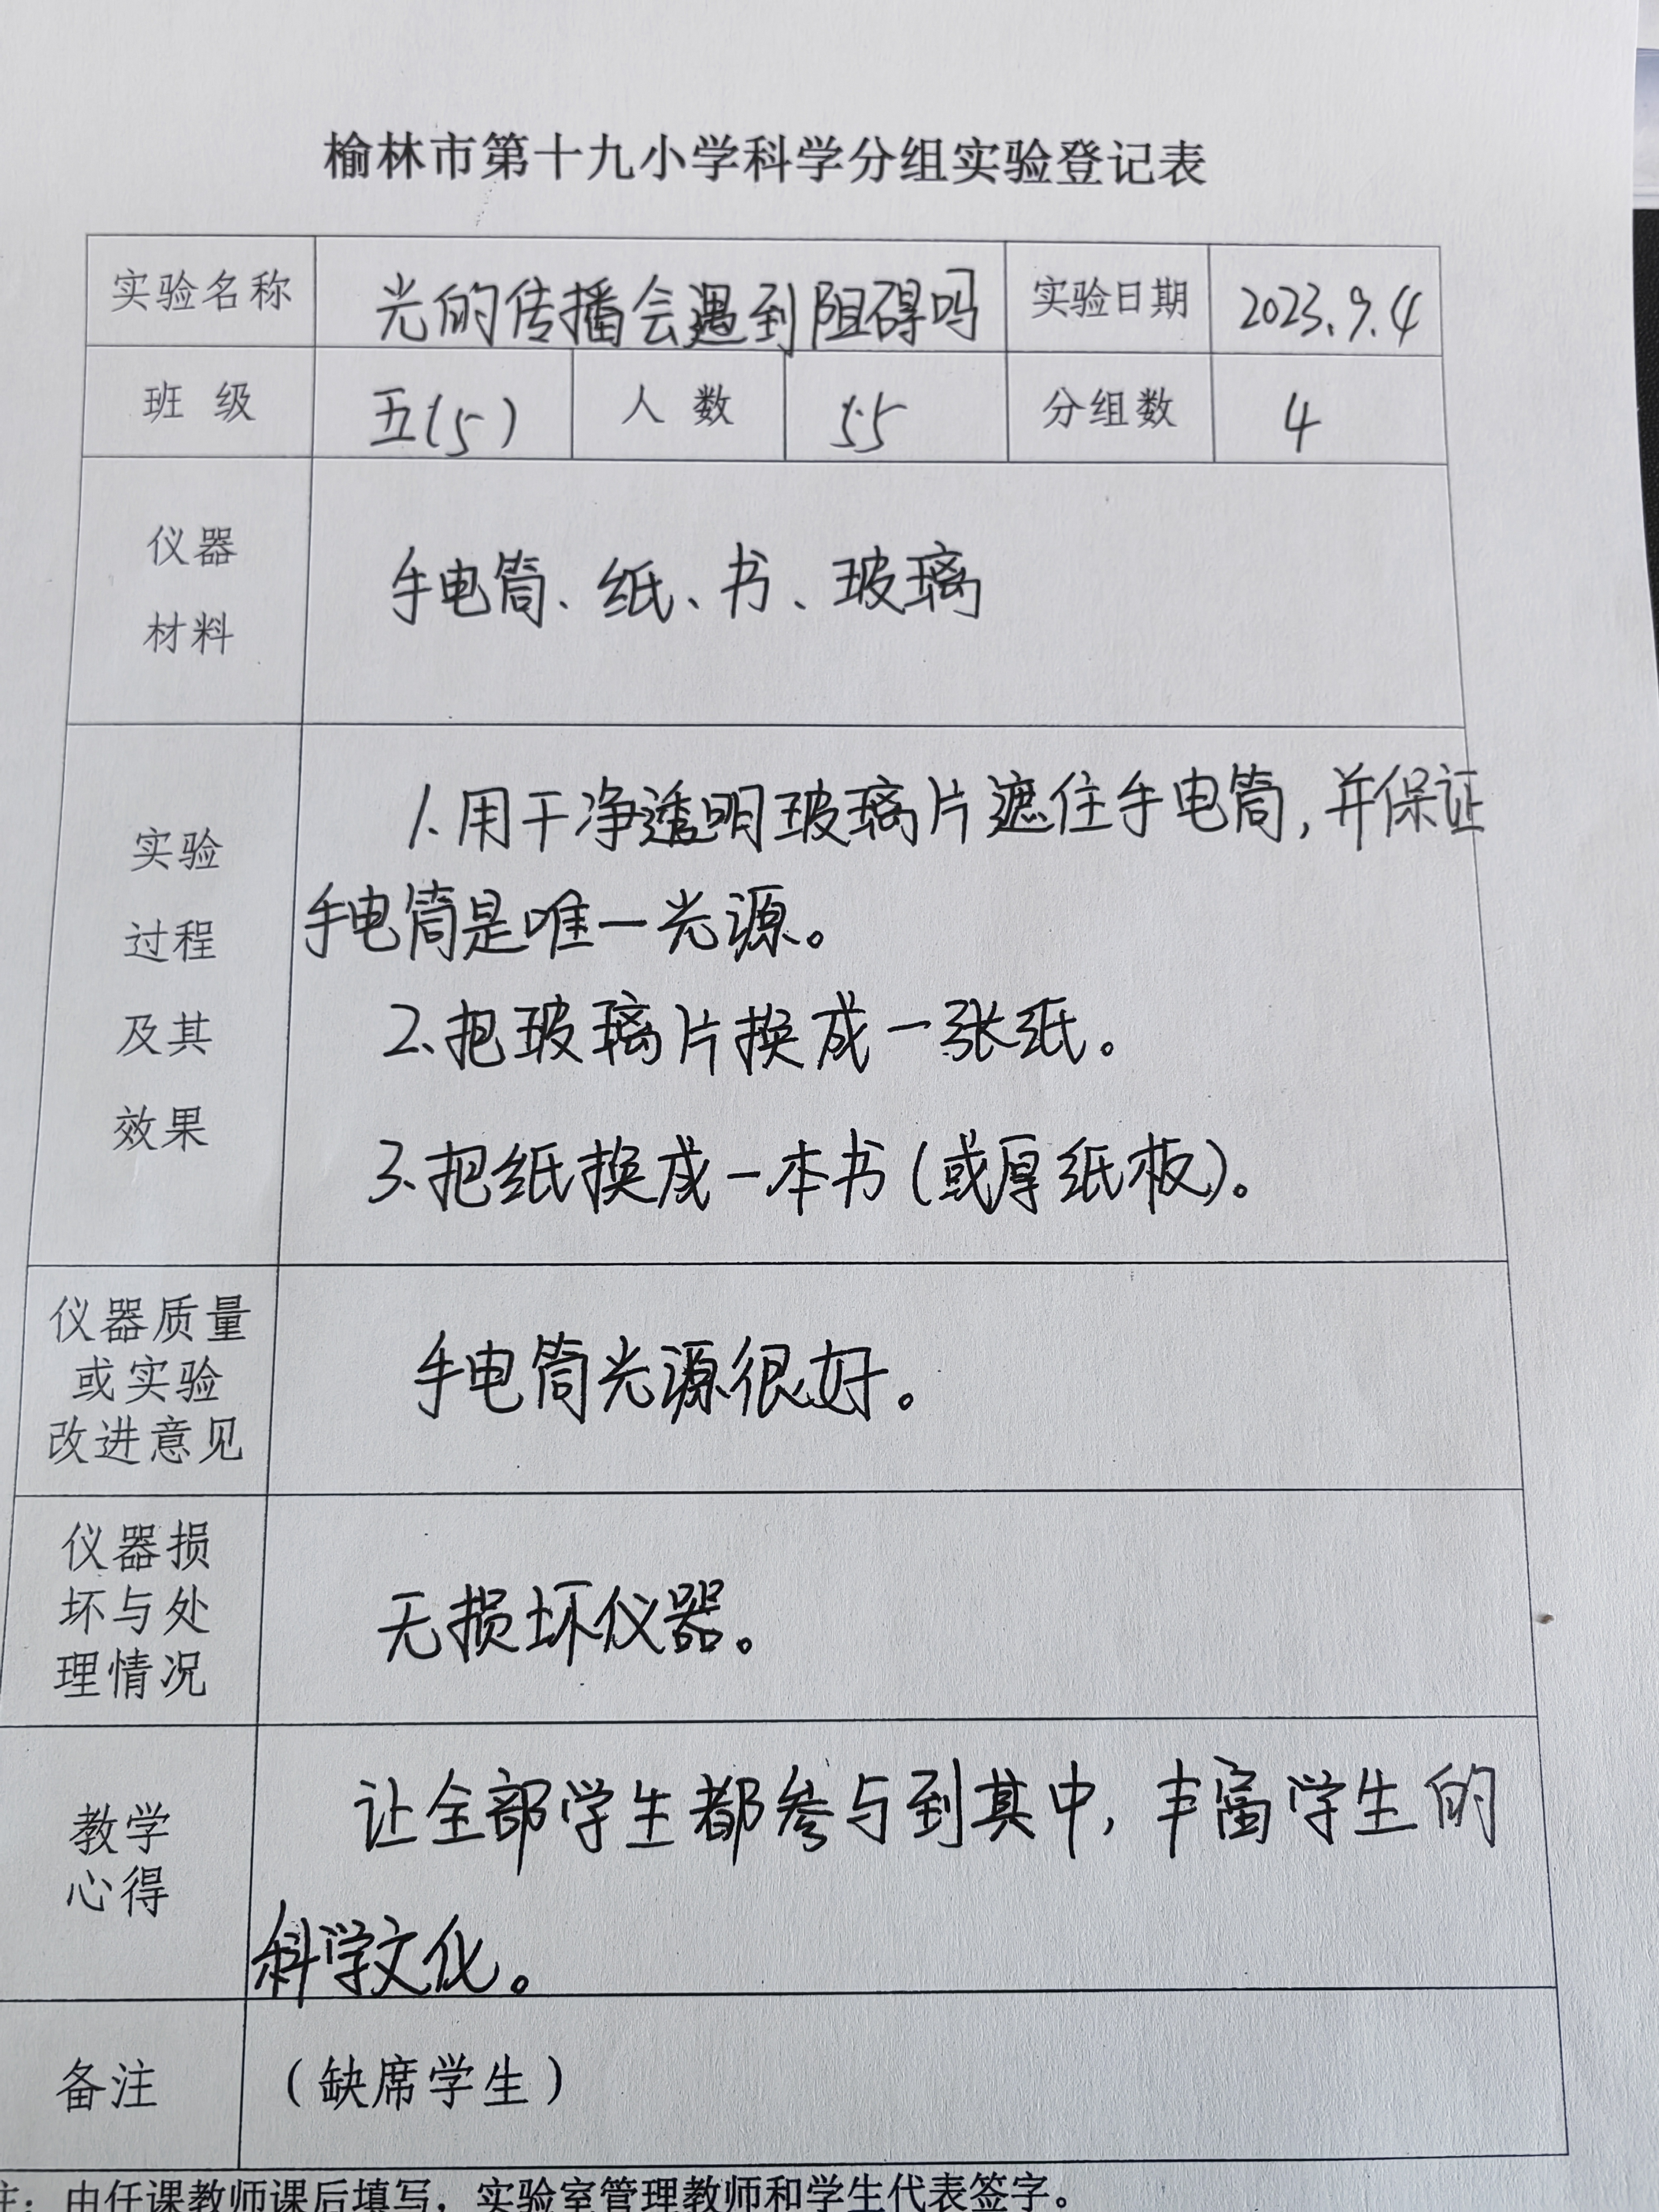 榆林市第十九小学科学分组实验登记表
实验名称 光的传播会遇到阻碍吗 实验日期 2023.9.4
班 级 五(5) 人 数 55 分组数 4
仪器
材料
手电筒、纸、书、玻璃
实验
过程
及其
效果
1.用干净透明玻璃片遮住手电筒,并保证
手电筒是唯一光源。
2、把玻璃片换成一张纸。
3、把纸换成一本书(或厚纸板)。
仪器质量
或实验
改进意见
手电筒光源很好。
仪器损
坏与处
理情况
无损坏仪器。
教学
心得
让全部学生都参与到其中,丰富学生的
科学文化。
备注 (缺席学生)
注:由任课教师课后填写,实验室管理教师和学生代表签字。